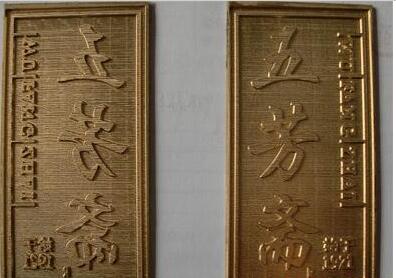 五芳斋
WU FANG ZHAI
1921
五芳斋
WU FANG ZHAI
1921